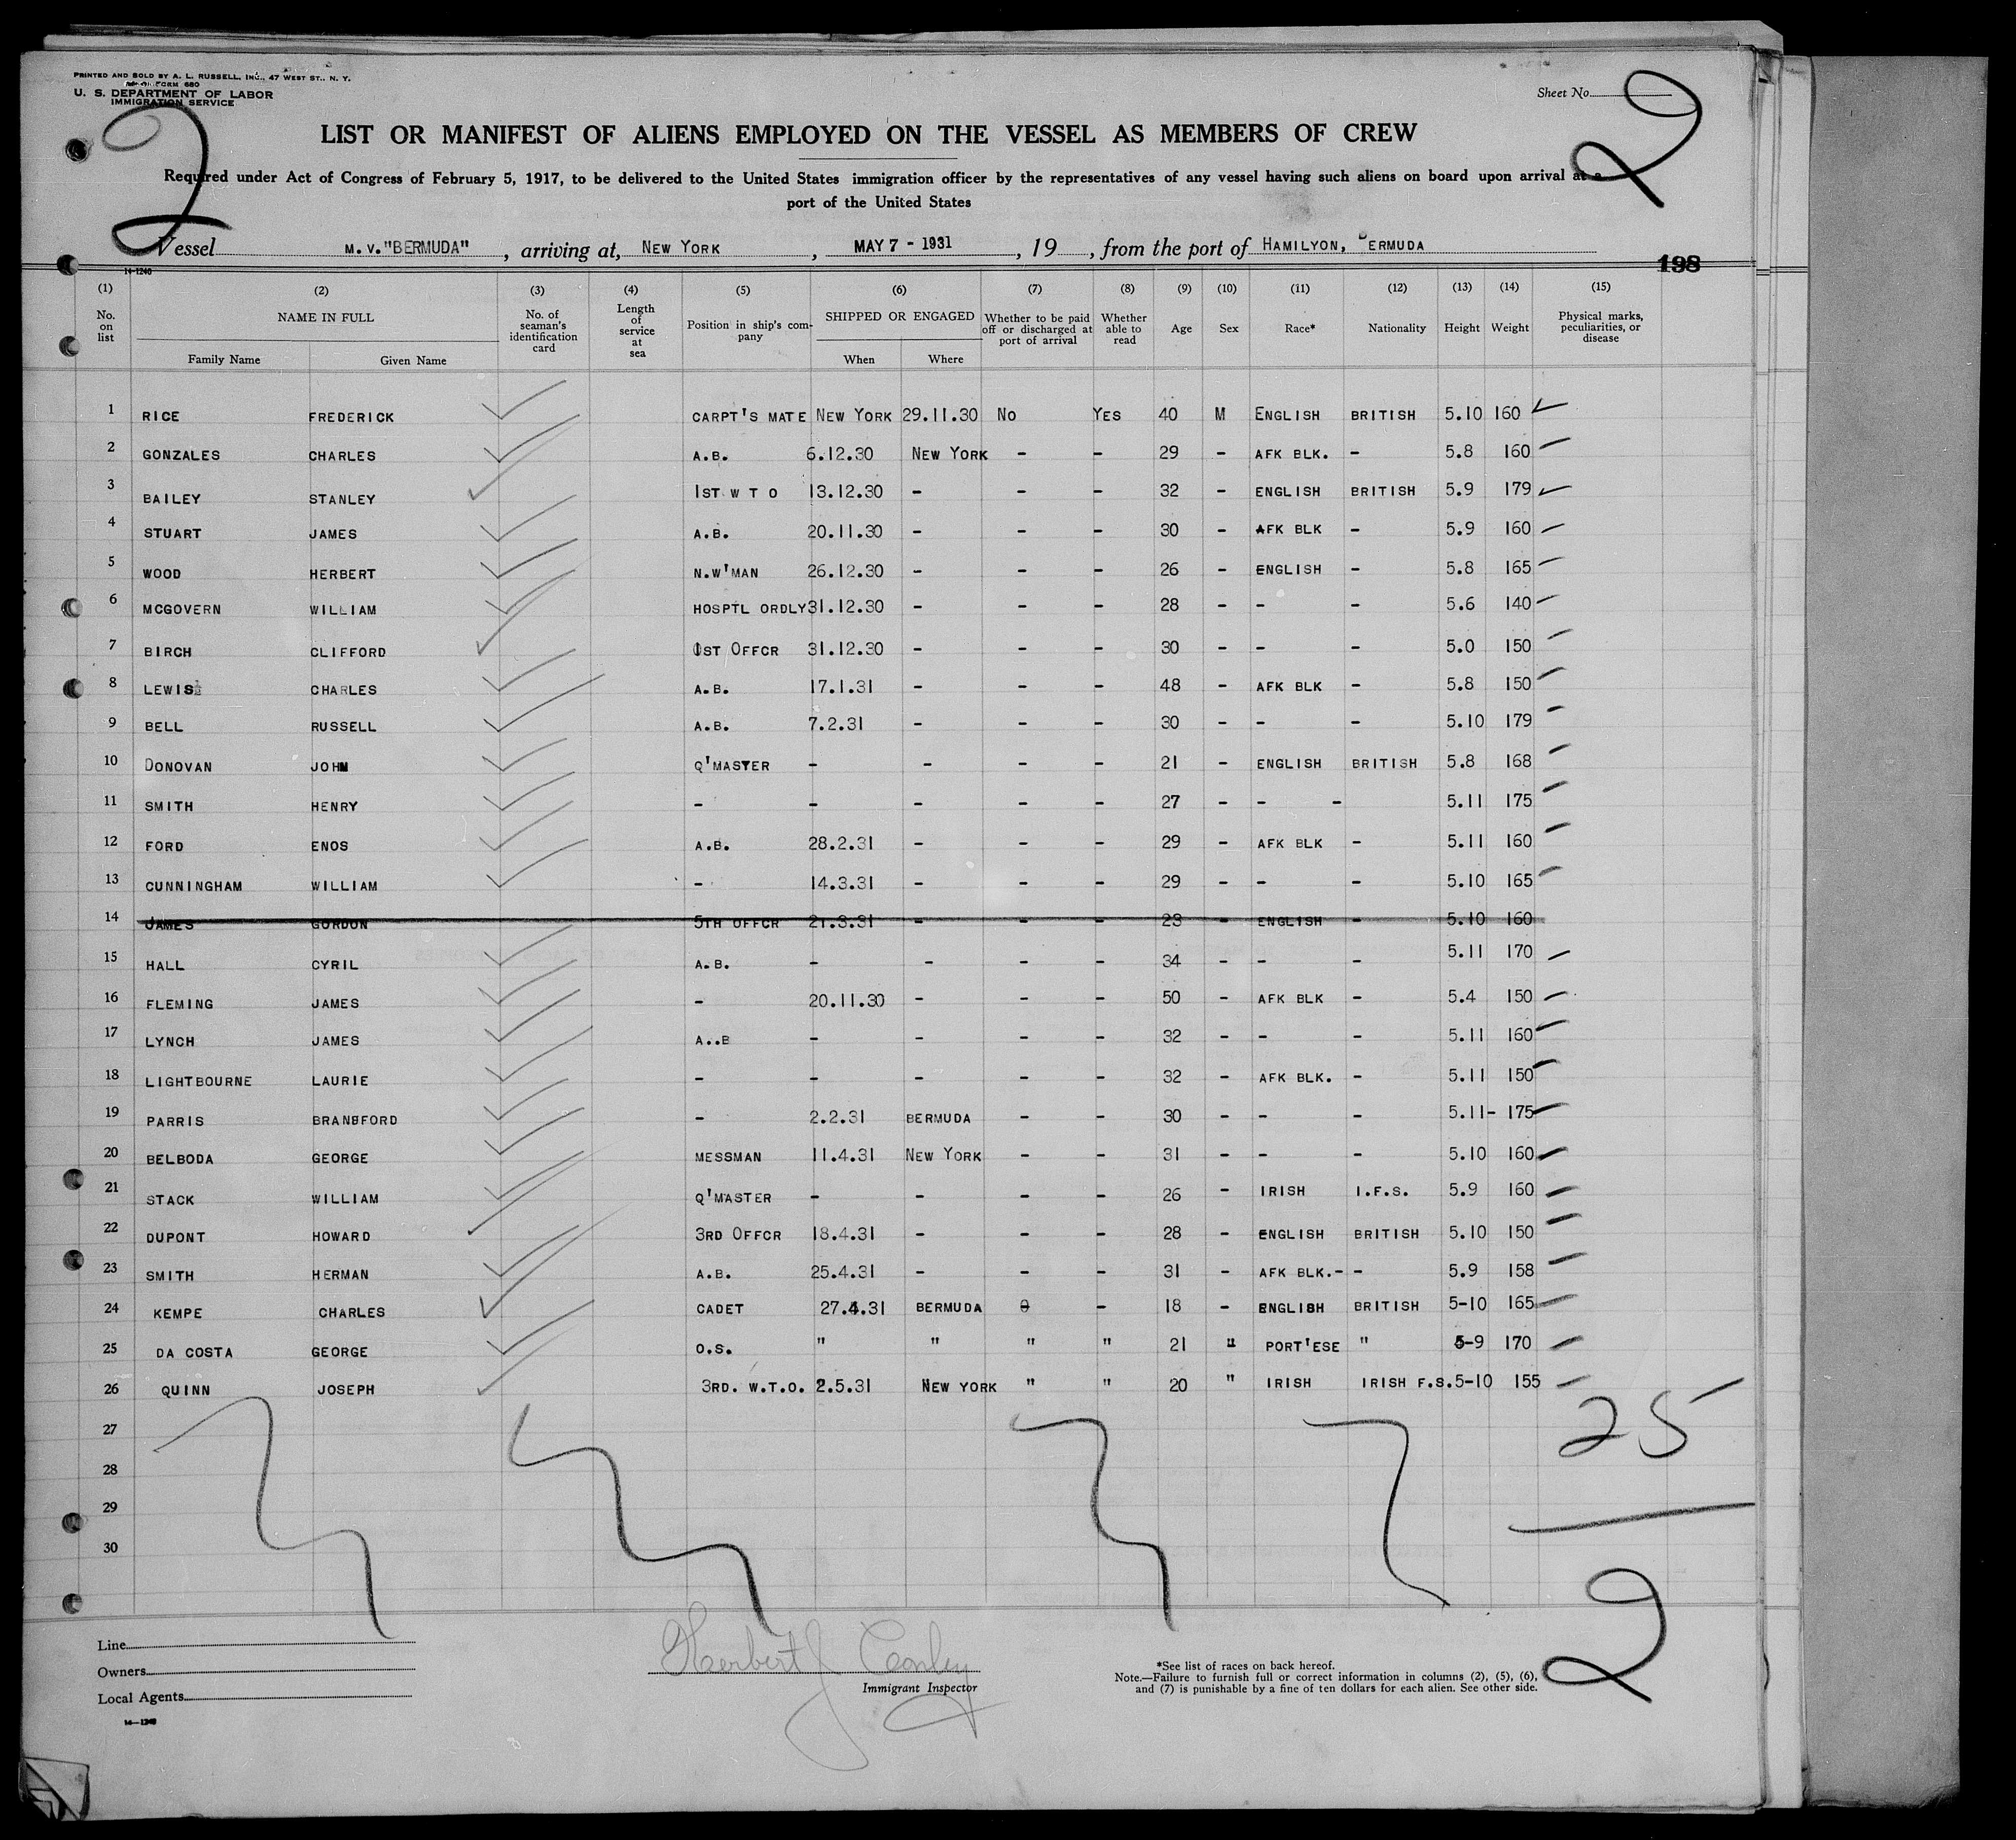 PRINTED AND SOLD BY A. L. RUSSELL, INC., 47 WEST ST., N. Y.
FORM 680
U. S. DEPARTMENT OF LABOR
IMMIGRATION SERVICE
Sheet No. 2
2
LIST OR MANIFEST OF ALIENS EMPLOYED ON THE VESSEL AS MEMBERS OF CREW
Required under Act of Congress of February 5, 1917, to be delivered to the United States immigration officer by the representatives of any vessel having such aliens on board upon arrival at a
port of the United States
Vessel M.V."BERMUDA" , arriving at, NEW YORK , MAY 7 - 1931 , 19 , from the port of HAMILYON, BERMUDA
198
14-1240
(1) (2) (3) (4) (5) (6) (7) (8) (9) (10) (11) (12) (13) (14) (15)
No. on list NAME IN FULL Family Name Given Name No. of seaman's identification card Length of service at sea Position in ship's company SHIPPED OR ENGAGED When Where Whether to be paid off or discharged at port of arrival Whether able to read Age Sex Race* Nationality Height Weight Physical marks, peculiarities, or disease
1 RICE FREDERICK CARPT'S MATE NEW YORK 29.11.30 NO YES 40 M ENGLISH BRITISH 5.10 160
2 GONZALES CHARLES A.B. 6.12.30 NEW YORK - - 29 - AFK BLK. - 5.8 160
3 BAILEY STANLEY 1ST W T O 13.12.30 - - - 32 - ENGLISH BRITISH 5.9 179
4 STUART JAMES A.B. 20.11.30 - - - 30 - AFK BLK - 5.9 160
5 WOOD HERBERT N.W'MAN 26.12.30 - - - 26 - ENGLISH - 5.8 165
6 MCGOVERN WILLIAM HOSPTL ORDLY 31.12.30 - - - 28 - - - 5.6 140
7 BIRCH CLIFFORD 1ST OFFCR 31.12.30 - - - 30 - - - 5.0 150
8 LEWIS CHARLES A.B. 17.1.31 - - - 48 - AFK BLK - 5.8 150
9 BELL RUSSELL A.B. 7.2.31 - - - 30 - - - 5.10 179
10 DONOVAN JOHN Q'MASTER - - - - 21 - ENGLISH BRITISH 5.8 168
11 SMITH HENRY - - - - - 27 - - - 5.11 175
12 FORD ENOS A.B. 28.2.31 - - - 29 - AFK BLK - 5.11 160
13 CUNNINGHAM WILLIAM - 14.3.31 - - - 29 - - - 5.10 165
14 JAMES GORDON 5TH OFFCR 21.3.31 - - - 23 - ENGLISH - 5.10 160
15 HALL CYRIL A.B. - - - - 34 - - - 5.11 170
16 FLEMING JAMES - 20.11.30 - - - 50 - AFK BLK - 5.4 150
17 LYNCH JAMES A..B - - - - 32 - - - 5.11 160
18 LIGHTBOURNE LAURIE - - - - - 32 - AFK BLK. - 5.11 150
19 PARRIS BRANSFORD - 2.2.31 BERMUDA - - 30 - - - 5.11- 175
20 BELBODA GEORGE MESSMAN 11.4.31 NEW YORK - - 31 - - - 5.10 160
21 STACK WILLIAM Q'MASTER - - - - 26 - IRISH I.F.S. 5.9 160
22 DUPONT HOWARD 3RD OFFCR 18.4.31 - - - 28 - ENGLISH BRITISH 5.10 150
23 SMITH HERMAN A.B. 25.4.31 - - - 31 - AFK BLK.- - 5.9 158
24 KEMPE CHARLES CADET 27.4.31 BERMUDA - 18 - ENGLISH BRITISH 5-10 165
25 DA COSTA GEORGE O.S. " " " " 21 " PORT'ESE " 5-9 170
26 QUINN JOSEPH 3RD. W.T.O. 2.5.31 NEW YORK " " 20 " IRISH IRISH F.S. 5-10 155
27
25
28
29
30
2
Line
Owners
Local Agents
14-1240
Herbert J Conley
Immigrant Inspector
*See list of races on back hereof.
Note.—Failure to furnish full or correct information in columns (2), (5), (6),
and (7) is punishable by a fine of ten dollars for each alien. See other side.